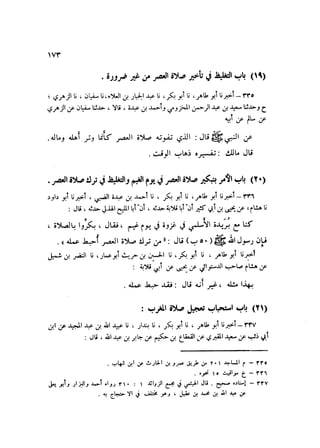 ١٧٣
(١٩) باب التغليظ في تأخير صلاة العصر من غير ضرورة .
٣٣٥ — أخبرنا أبو طاهر ، نا أبو بكر ، نا عبد الجبار بن العلاء ، نا سفيان ، نا الزهري ؛
ح وحدثنا سعيد بن عبد الرحمن المخزومي وأحمد بن عبدة ، قالا ، حدثنا سفيان عن الزهري
عن سالم عن أبيه
عن النبي ﷺ قال : الذي تفوته صلاة العصر كأنما وتر أهله وماله .
قال مالك : تفسيره ذهاب الوقت .
(٢٠) باب الأمر بتبكير صلاة العصر في يوم الغيم والتغليظ في ترك صلاة العصر .
٣٣٦ — أخبرنا أبو طاهر ، نا أبو بكر ، نا أحمد بن عبدة الضبي ، أخبرنا أبو داود
نا هشام ، عن يحيى بن أبي كثير أن أبا قلابة حدثه ، أن أبا المليح الهذلي حدثه ، قال :
كنا مع بريدة الأسلمي في غزوة في يوم غيم ، فقال : بكروا بالصلاة ،
فإن رسول الله ﷺ (٥٠ ب) قال : « من ترك صلاة العصر أحبط عمله » .
أخبرنا أبو طاهر ، نا أبو بكر ، نا الحسين بن حريث أبو عمار ، نا النضر بن شميل
عن هشام صاحب الدستوائي عن يحيى عن أبي قلابة :
بهذا مثله ، غير أنه قال : فقد حبط عمله .
(٢١) باب استحباب تعجيل صلاة المغرب :
٣٣٧ — أخبرنا أبو طاهر ، نا أبو بكر ، نا بندار ، نا عبيد الله بن عبد المجيد عن ابن
أبي ذئب عن المقبري عن القعقاع بن حكيم عن جابر بن عبد الله ، قال :
٣٣٥ — م المساجد ٢٠١ من طريق عمرو بن الحارث عن ابن شهاب .
٣٣٦ — خ مواقيت ١٥ نحوه .
٣٣٧ — إسناده صحيح . قال الهيثمي في مجمع الزوائد ١ : ٣١٠ رواه أحمد والبزار وأبو يعلى